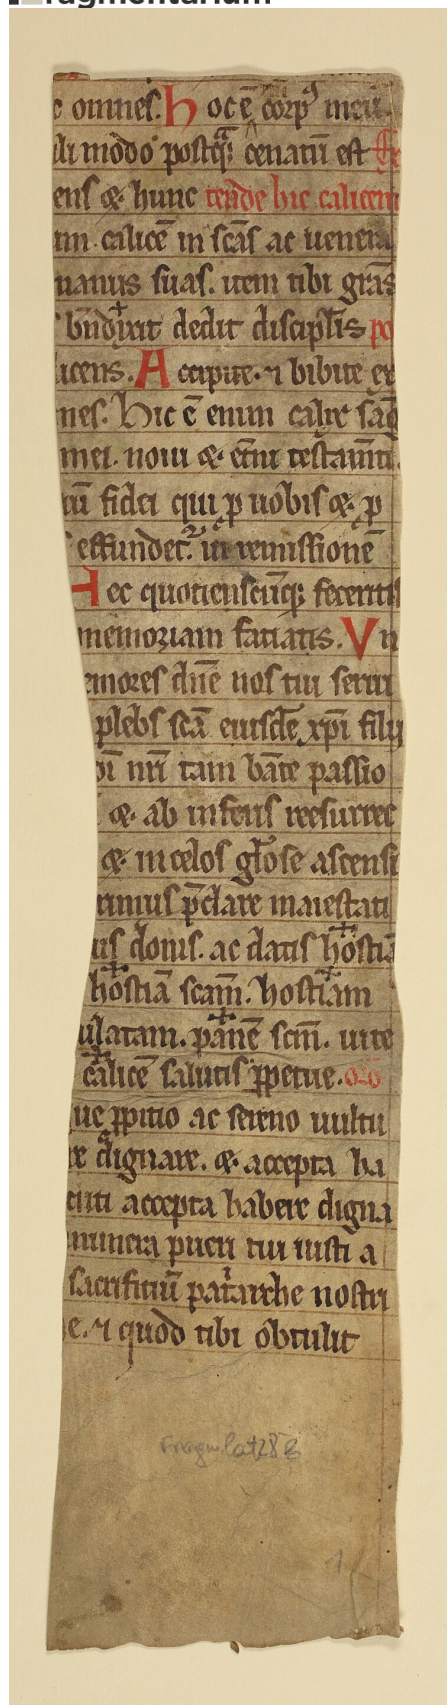 fragmentarium
omnes. Hoc ē corpꝰ meū.
li modo postqᷓ cenatū est
ens & hunc tende hic calicem
m calicē in scās ac uenera
manus suas. item tibi grās
bn̄dixit dedit discipl̄is po
icens. Accipite. ⁊ bibite ex
nes. Hic ē enim calix sāg
mei. noui & et̄ni testam̄ti.
ū fidei qui ꝓ uobis & ꝓ
effundet᷑ in remissionē
Hec quotienscūqꝫ feceritis
memoriam faciatis. Vn
emores dn̄e nos tui serui
plebs scā eiusdē xp̄i filij
nr̄i tam bāte passio
& ab inferis reesurrec
& in celos gl̄ose ascensi
rimus p̄clare maiestati
is donis. ac datis hostiā
hostiā scam̄. hostiam
ulatam. panē scm̄. uite
calicē salutis ꝑpetue.
ue ꝓpitio ac sereno uultu
re digᷓnare. & accepta ha
cuti accepta habere digna
munera pueri tui iusti a
sacrifitiū patarche nostri
e. ⁊ quod tibi obtulit